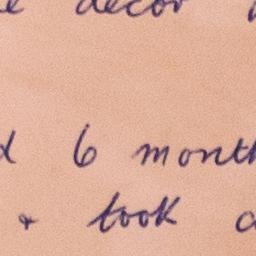 decor
6 month
+ took